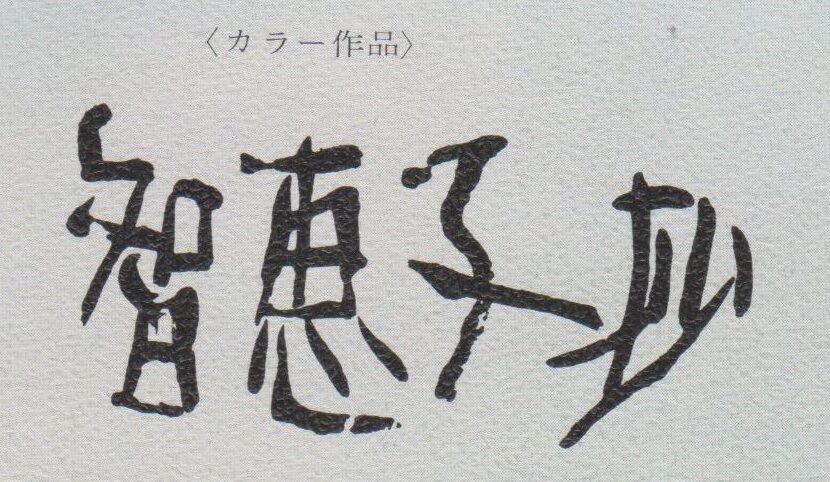 〈カラー作品〉
智恵子抄